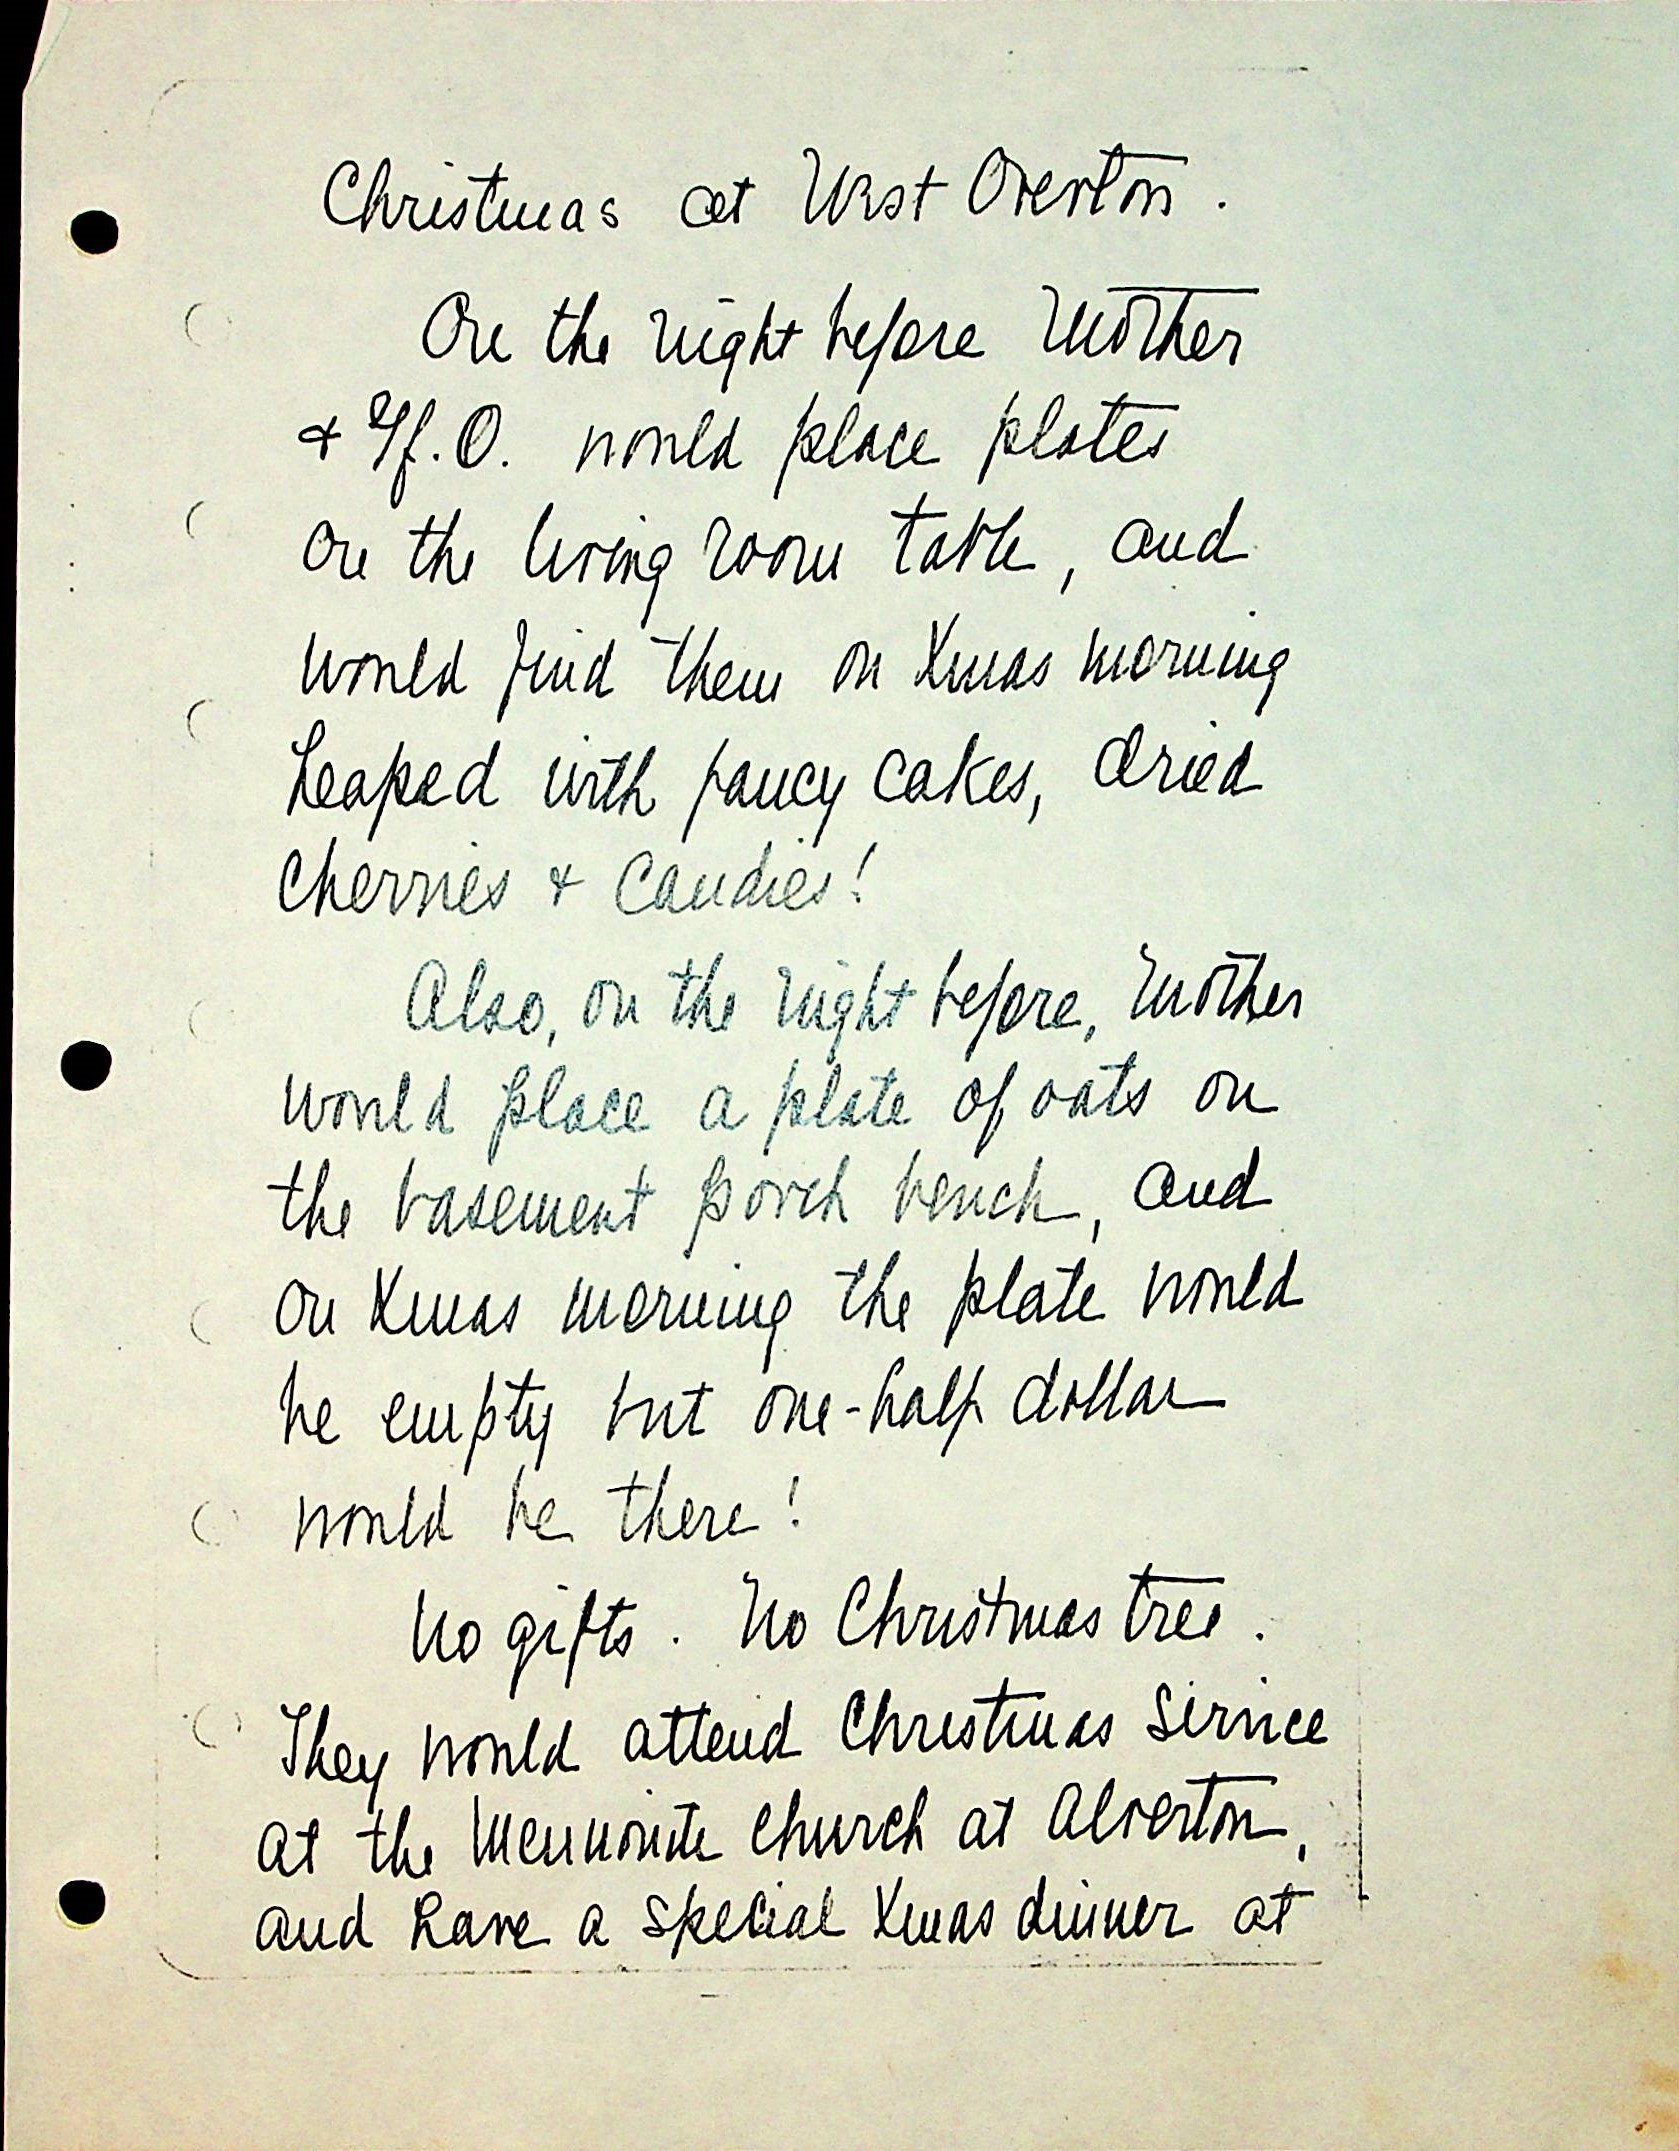 Christmas at West Overton.
On the night before Mother
& H.O. would place plates
on the living room table, and
would find them on Xmas morning
heaped with fancy cakes, dried
cherries & candies!
Also, on the night before, Mother
would place a plate of oats on
the basement porch bench, and
on Xmas morning the plate would
be empty but one-half dollar
would be there!
No gifts. No Christmas tree.
They would attend Christmas Service
at the Mennonite Church at Alverton,
and have a special Xmas dinner at